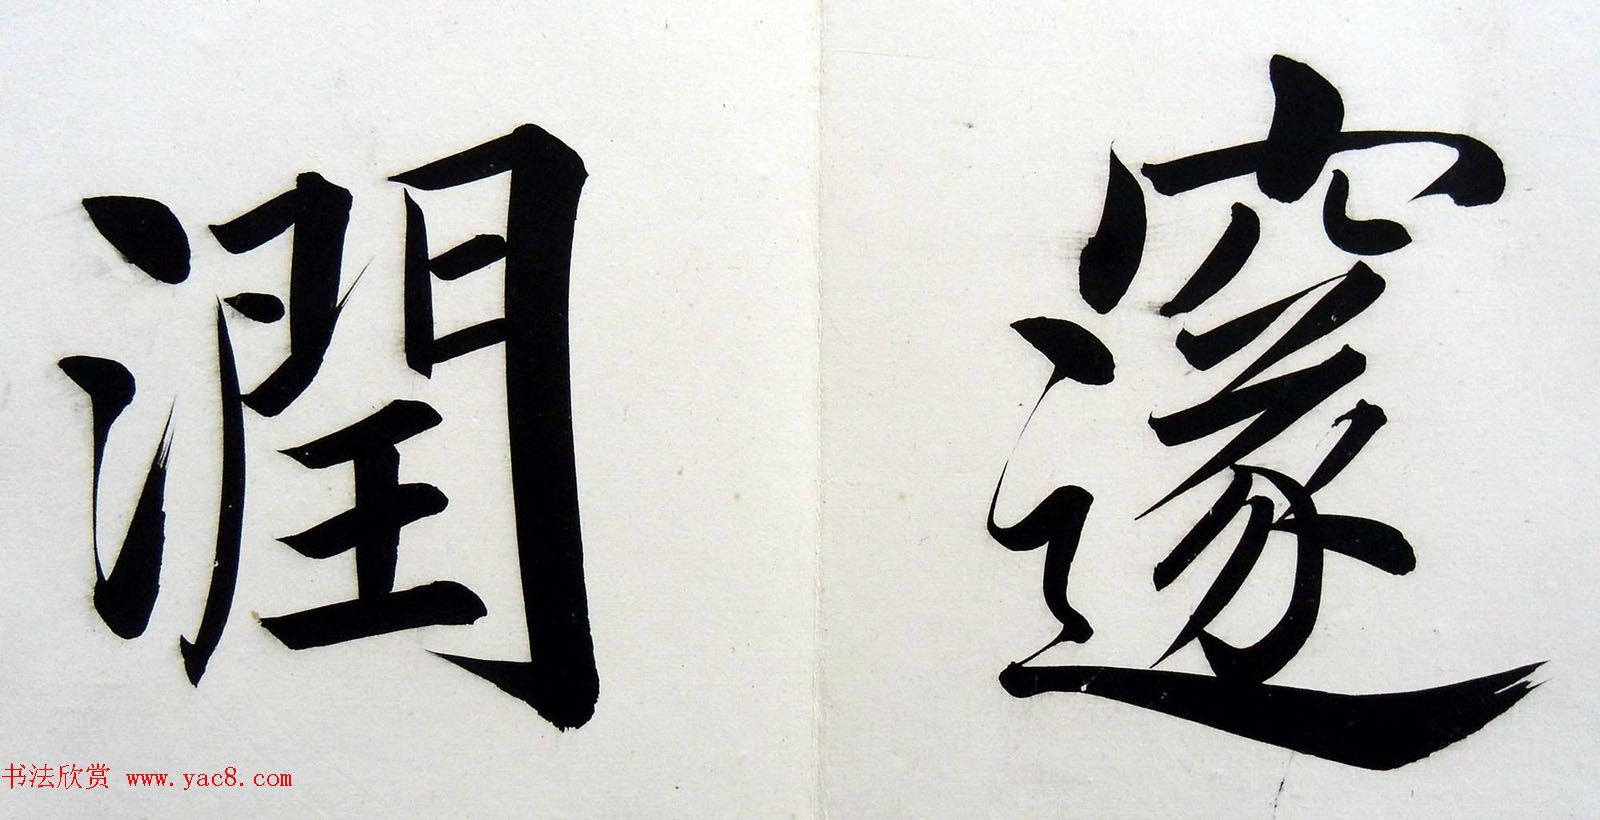 邃
潤
书法欣赏 www.yac8.com